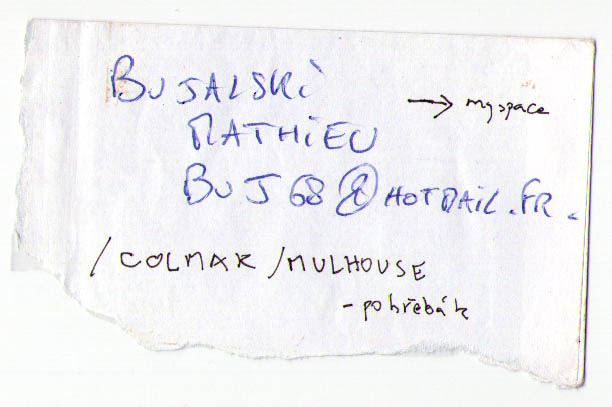 BUJALSKi
→ myspace
MATHiEU
BUJ68@HOTMAiL.FR.
/COLMAR/MULHOUSE
- pohřebák